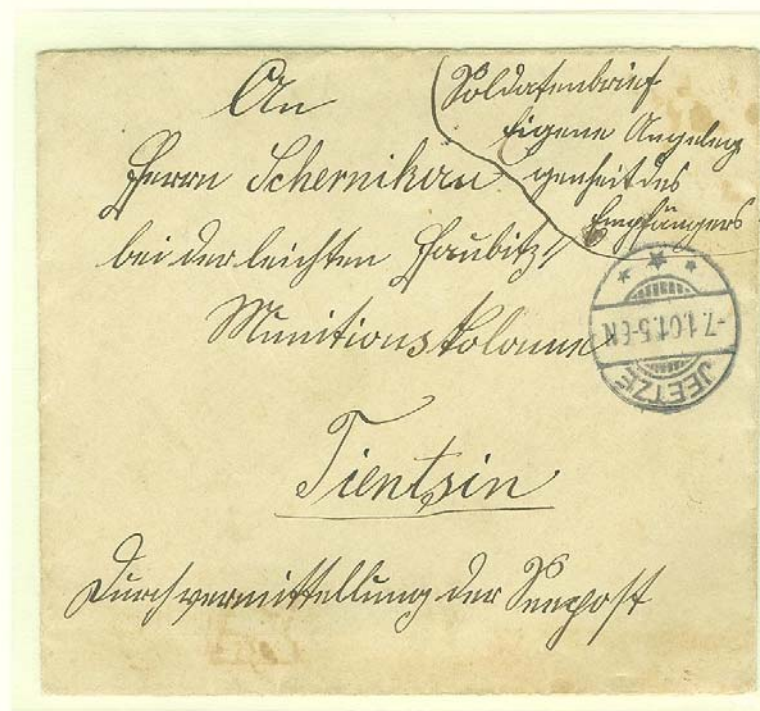 An
Herrn Schernikau
bei der leichten Haubitz
Munitionskolonne
Tientsin
Durchvermittellung der Seepost
Soldatenbrief
Eigene Angeleg
genheit des
Empfängers
-7.1.01.5-6N
JEETZE